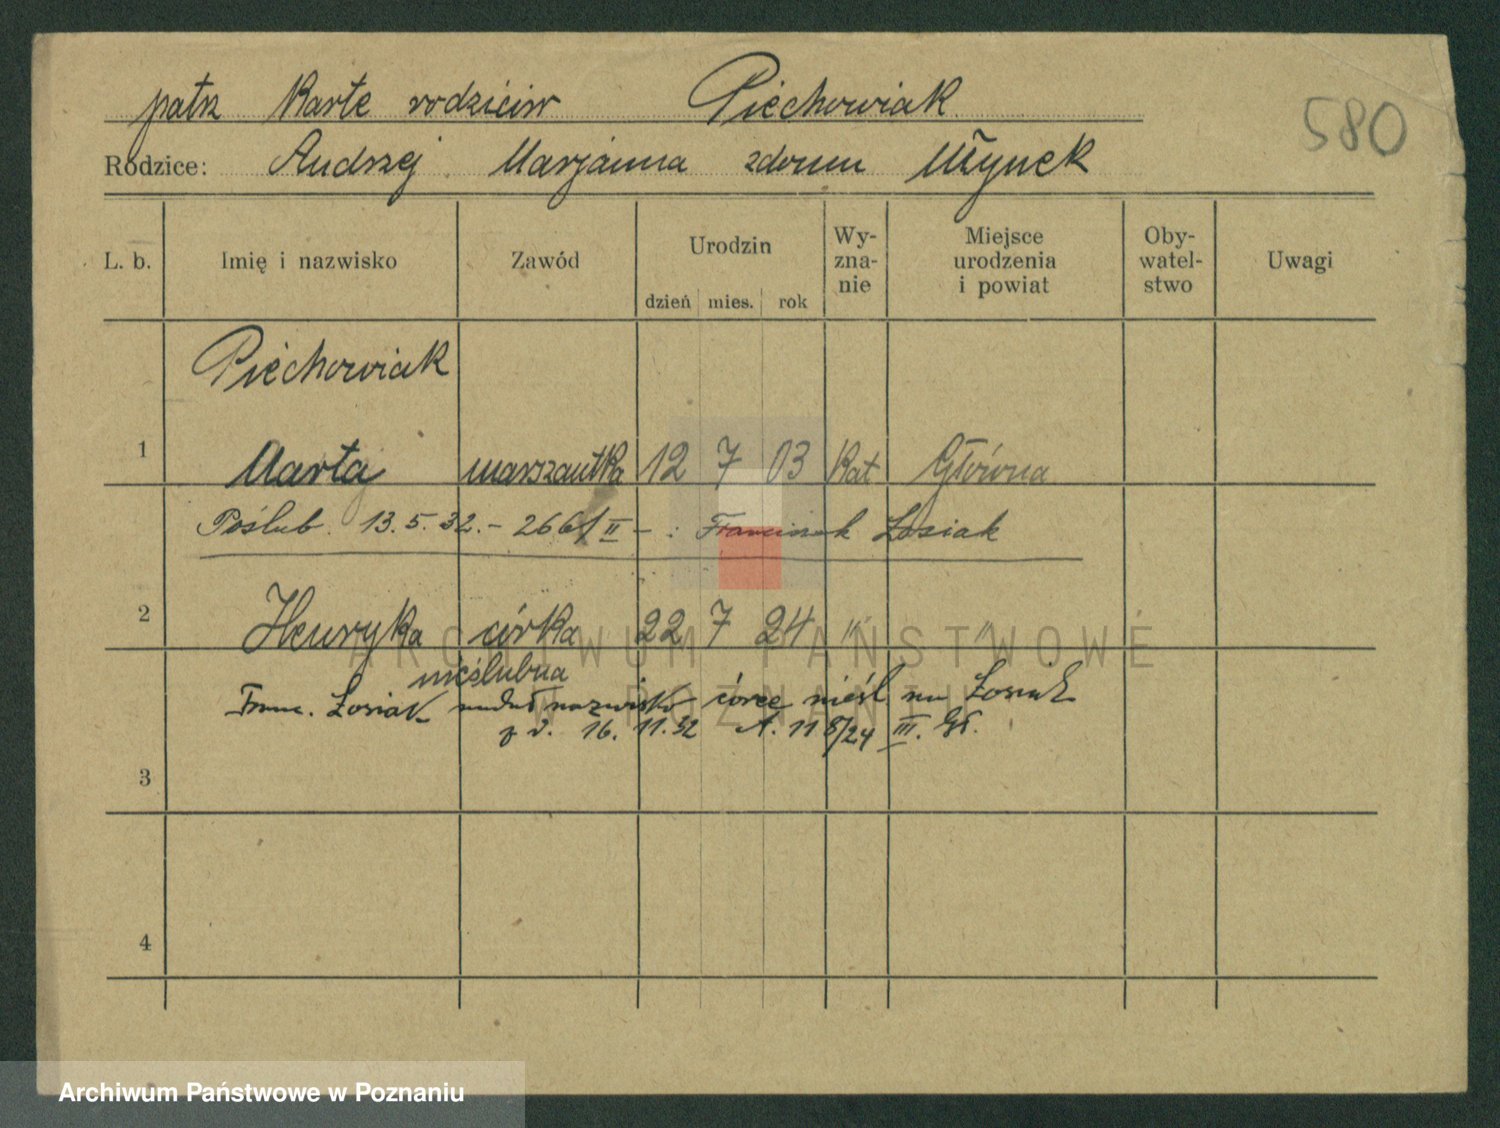 patrz Karte rodziców Piechowiak
580
Rodzice: Andrzej Marjanna zdomu Młynek
L. b. Imię i nazwisko Zawód Urodzin dzień mies. rok Wy-zna-nie Miejsce urodzenia i powiat Oby-watel-stwo Uwagi
Piechowiak
1 Marta marszantka 12 7 03 Kat Główna
Poślub. 13.5.32.- 266/II - : Franciszek Łosiak
2 Henryka córka 22 7 24 " "
nieślubna
Franc. Łosiak nadał nazwisko córce nieśl. na Łosiak
z d. 16. 11. 32 A. 118/24 III. Gł.
3
4
ARCHIWUM PAŃSTWOWE
W POZNANIU
Archiwum Państwowe w Poznaniu